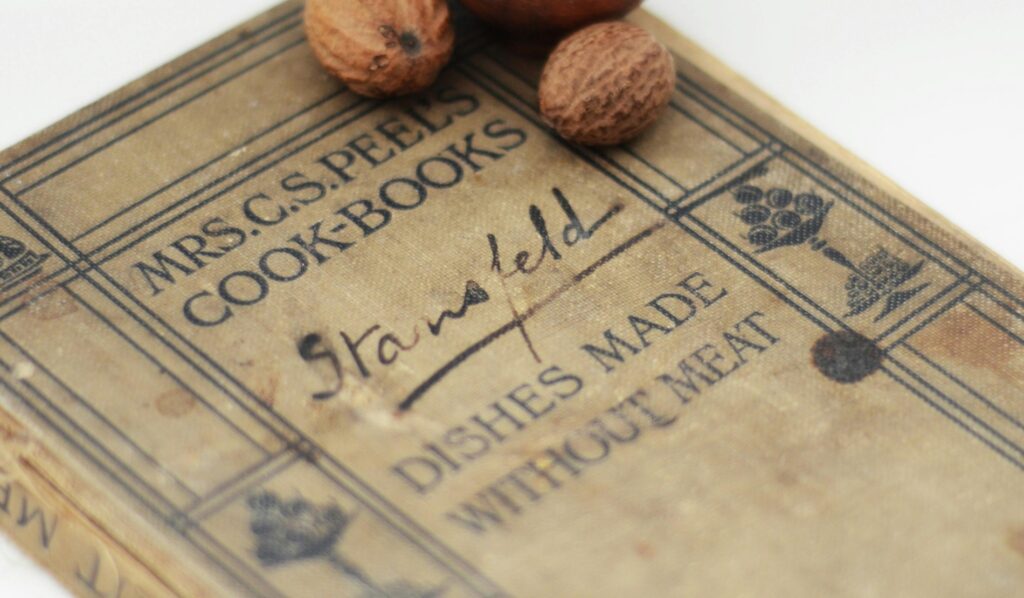 MRS. C. S. PEEL'S
COOK-BOOKS
Stansfeld
DISHES MADE
WITHOUT MEAT